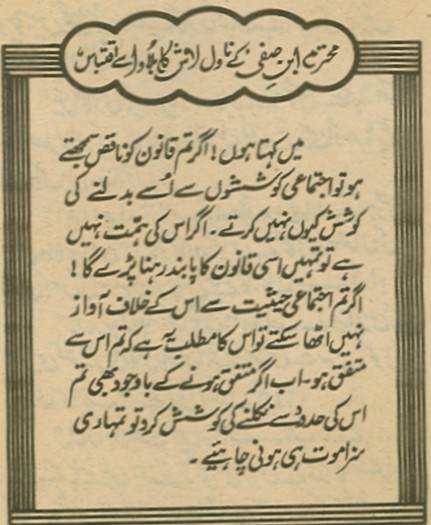 محترم ابن صفی کے ناول لاش کا بلاوا سے اقتباس
میں کہتا ہوں! اگر تم قانون کو ناقص سمجھتے
ہو تو اجتماعی کوششوں سے اُسے بدلنے کی
کوشش کیوں نہیں کرتے۔ اگر اس کی ہمّت نہیں
ہے تو تمہیں اسی قانون کا پابند رہنا پڑے گا!
اگر تم اجتماعی حیثیت سے اس کے خلاف آواز
نہیں اٹھا سکتے تو اس کا مطلب یہ ہے کہ تم اس سے
متفق ہو۔ اب اگر متفق ہونے کے باوجود بھی تم
اس کی حدود سے نکلنے کی کوشش کرو تو تمہاری
سزا موت ہی ہونی چاہئیے۔